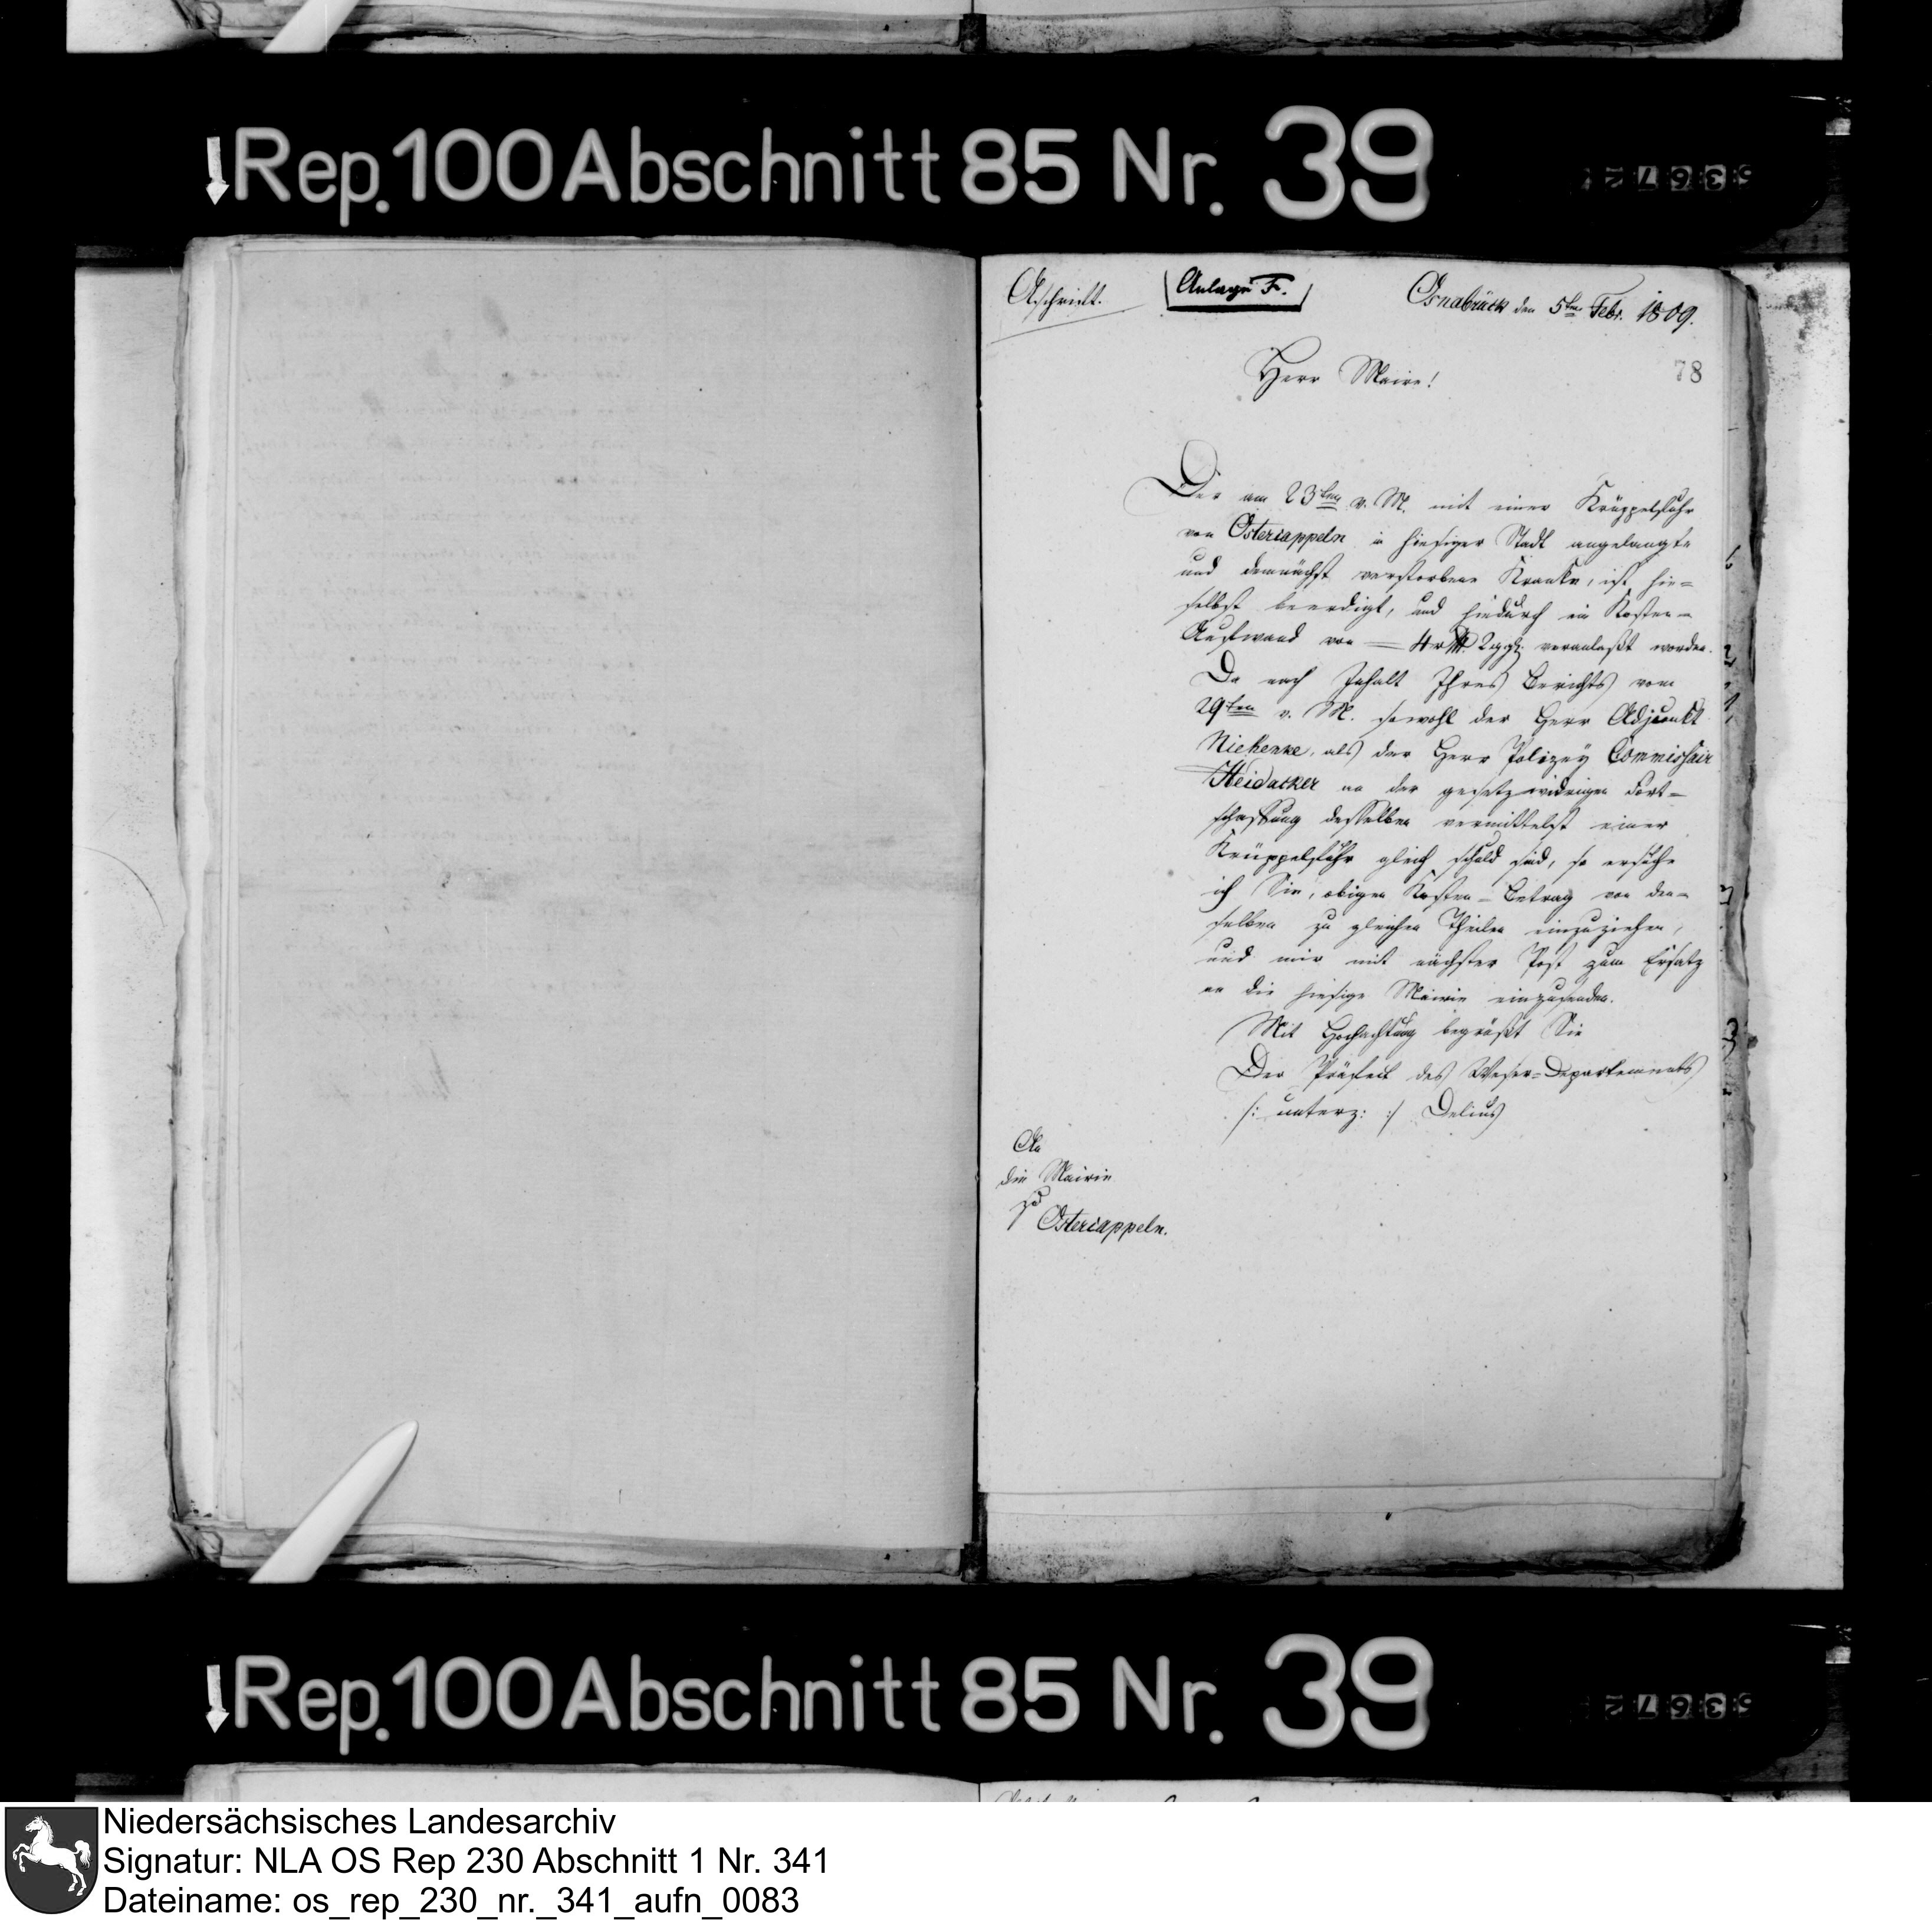 Rep. 100 Abschnitt 85 Nr. 39
Abschrift.
Anlage F.
Osnabrück den 5ten Febr. 1809.
78
Herr Maire!
Der am 23ten v. M. mit einer Krüppelfuhr
von Ostercappeln in hiesiger Stadt angelangte
und demnächst verstorbene Kranke, ist hie=
selbst beerdigt, und hiedurch ein Kosten=
Aufwand von = 4 rth 2 ggr. veranlaßt worden.
Da nach Inhalt Ihres Berichts vom
29ten v. M. sowohl der Herr Adjunkt
Niekenke, als der Herr Polizey Commissair
Heidacker an der gesetzwidrigen Fort=
schaffung desselben vermittelst einer
Krüppelfuhr gleich schuld sind, so ersuche
ich Sie, obigen Kosten=Betrag von den=
selben zu gleichen Theilen einzuziehen,
und mir mit nächster Post zum Ersatz
an die hiesige Mairie einzusenden.
Mit Hochachtung begrüßt Sie
Der Präfect des Weser=Departements
/: unterz: :/ Delius
An
die Mairie
zu
Ostercappeln.
Rep. 100 Abschnitt 85 Nr. 39
Niedersächsisches Landesarchiv
Signatur: NLA OS Rep 230 Abschnitt 1 Nr. 341
Dateiname: os_rep_230_nr._341_aufn_0083